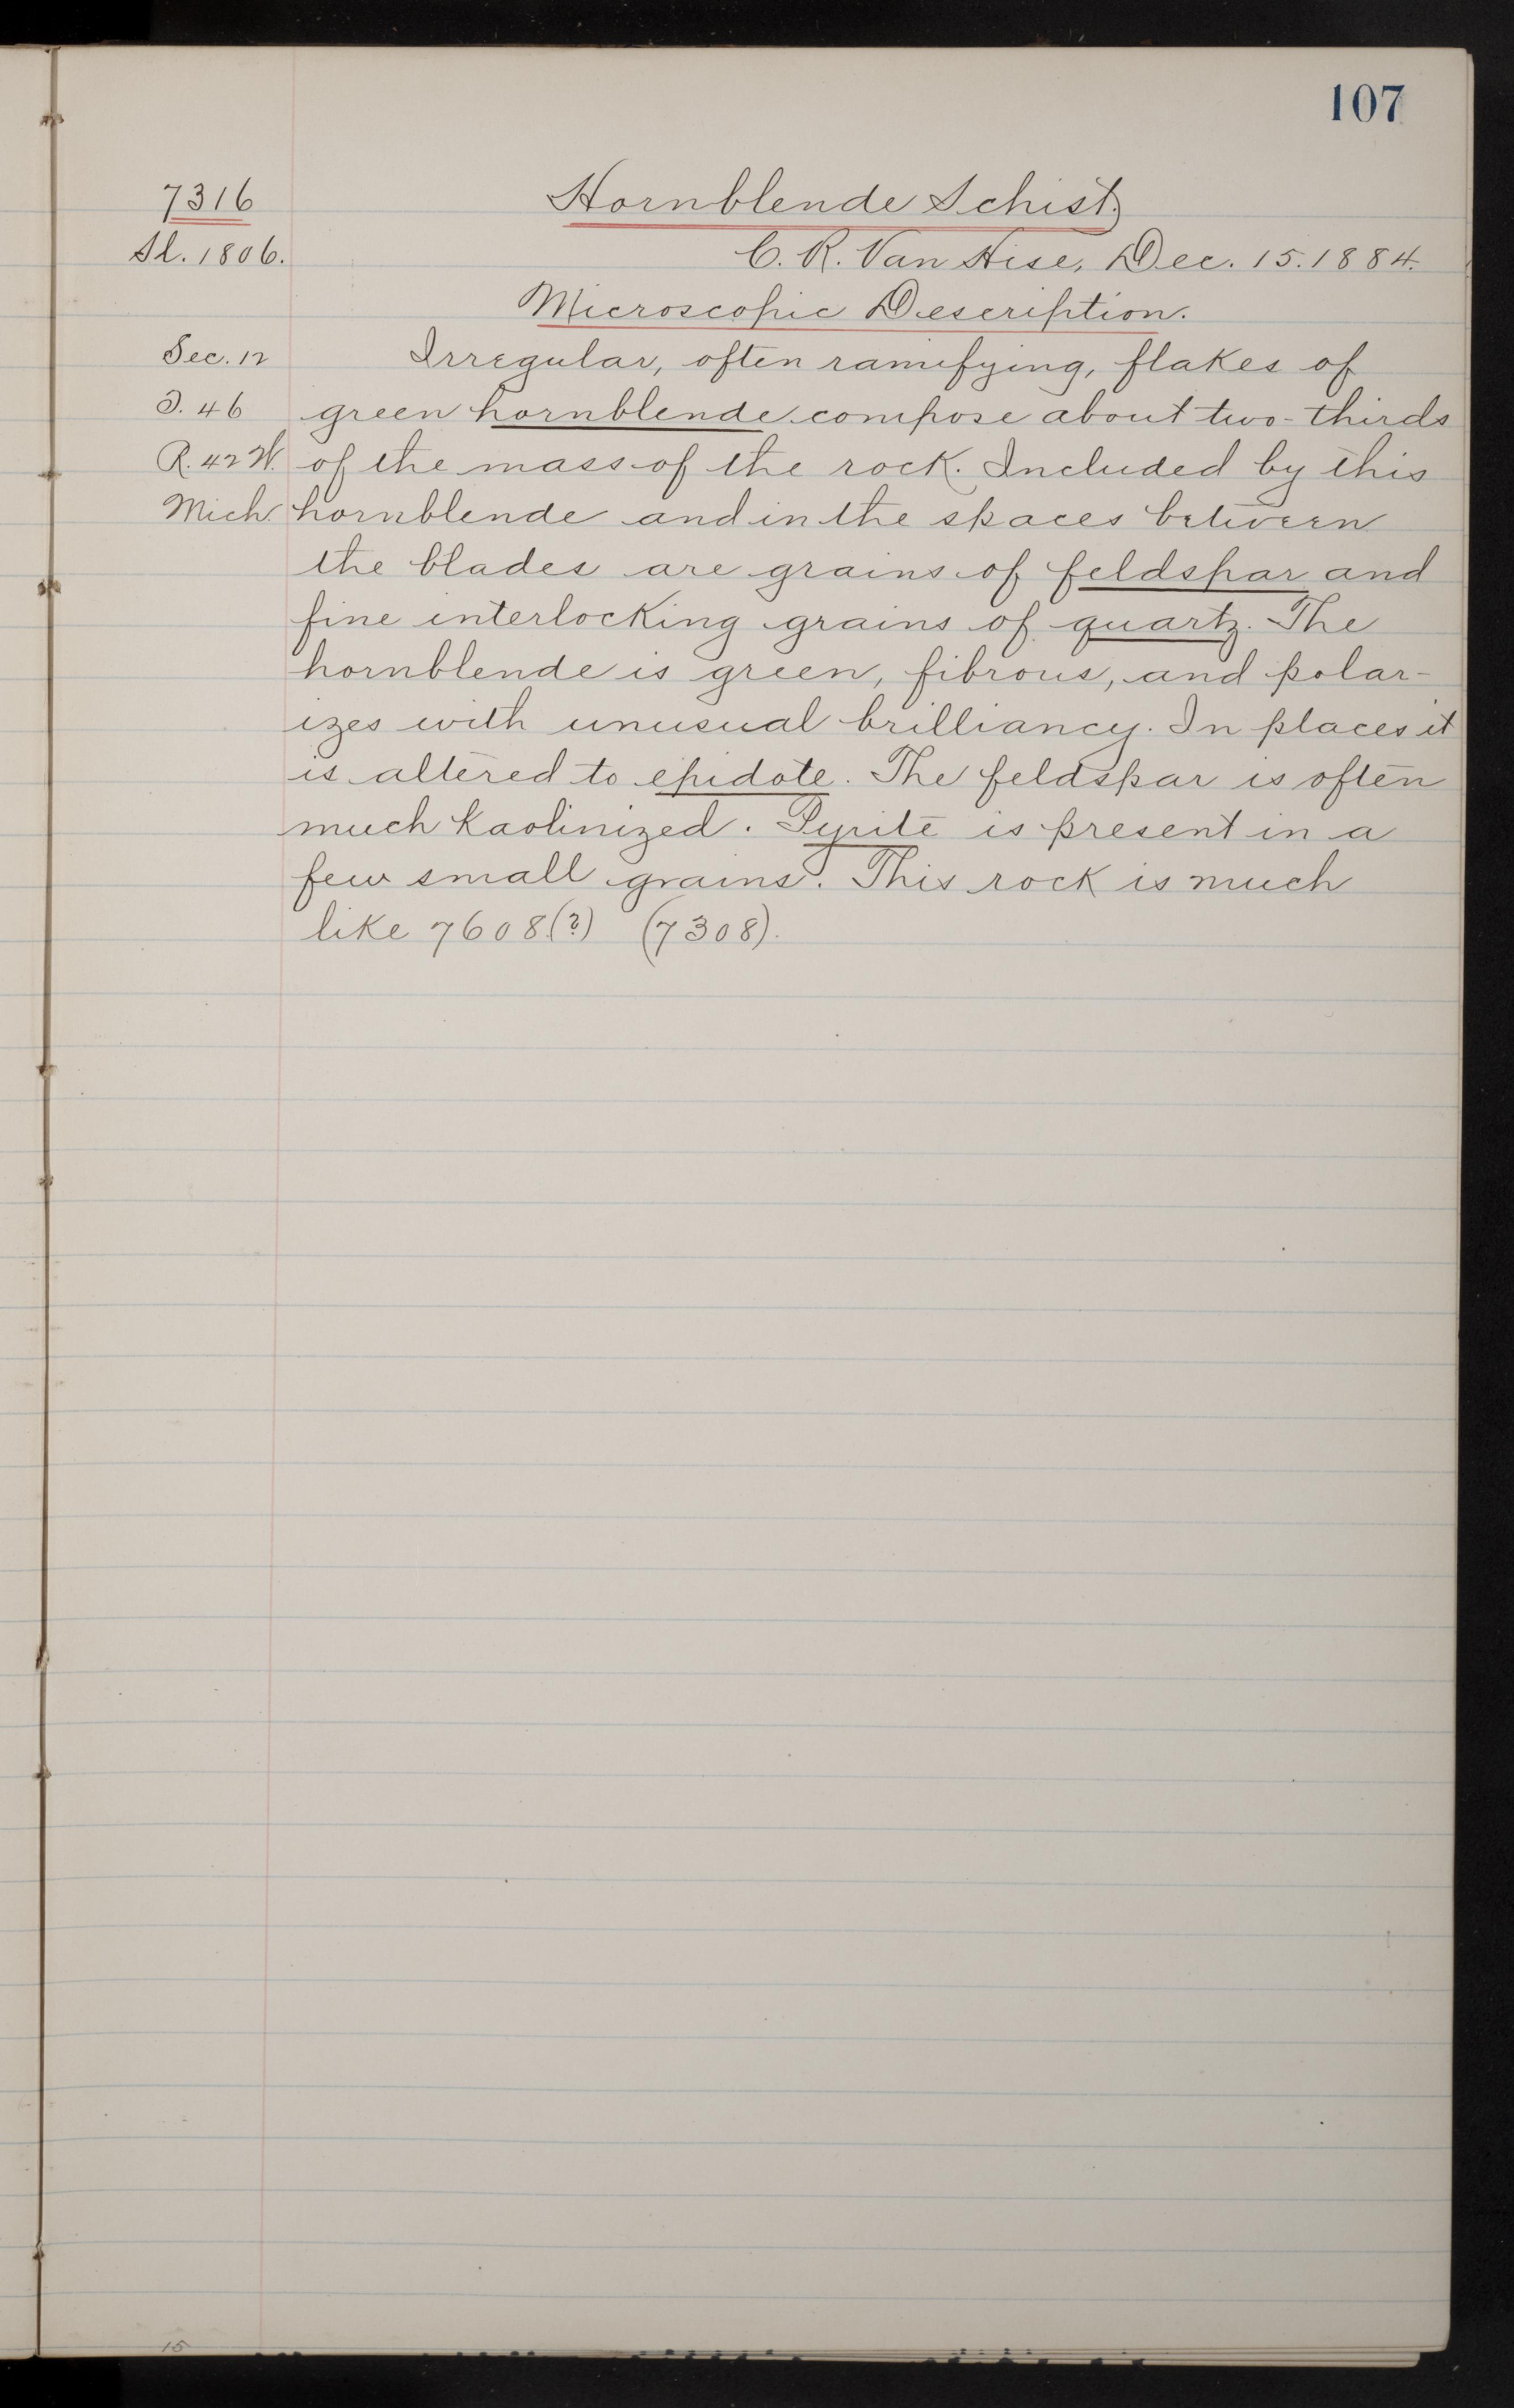 107
7316
Hornblende Schist.
Sl. 1806.
C. R. Van Hise, Dec. 15. 1884.
Microscopic Description.
Sec. 12
Irregular, often ramifying, flakes of
T. 46
green hornblende compose about two-thirds
R. 42 W.
of the mass of the rock. Included by this
Mich.
hornblende and in the spaces between
the blades are grains of feldspar and
fine interlocking grains of quartz. The
hornblende is green, fibrous, and polar-
izes with unusual brilliancy. In places it
is altered to epidote. The feldspar is often
much kaolinized. Pyrite is present in a
few small grains. This rock is much
like 7608(?) (7308).
15